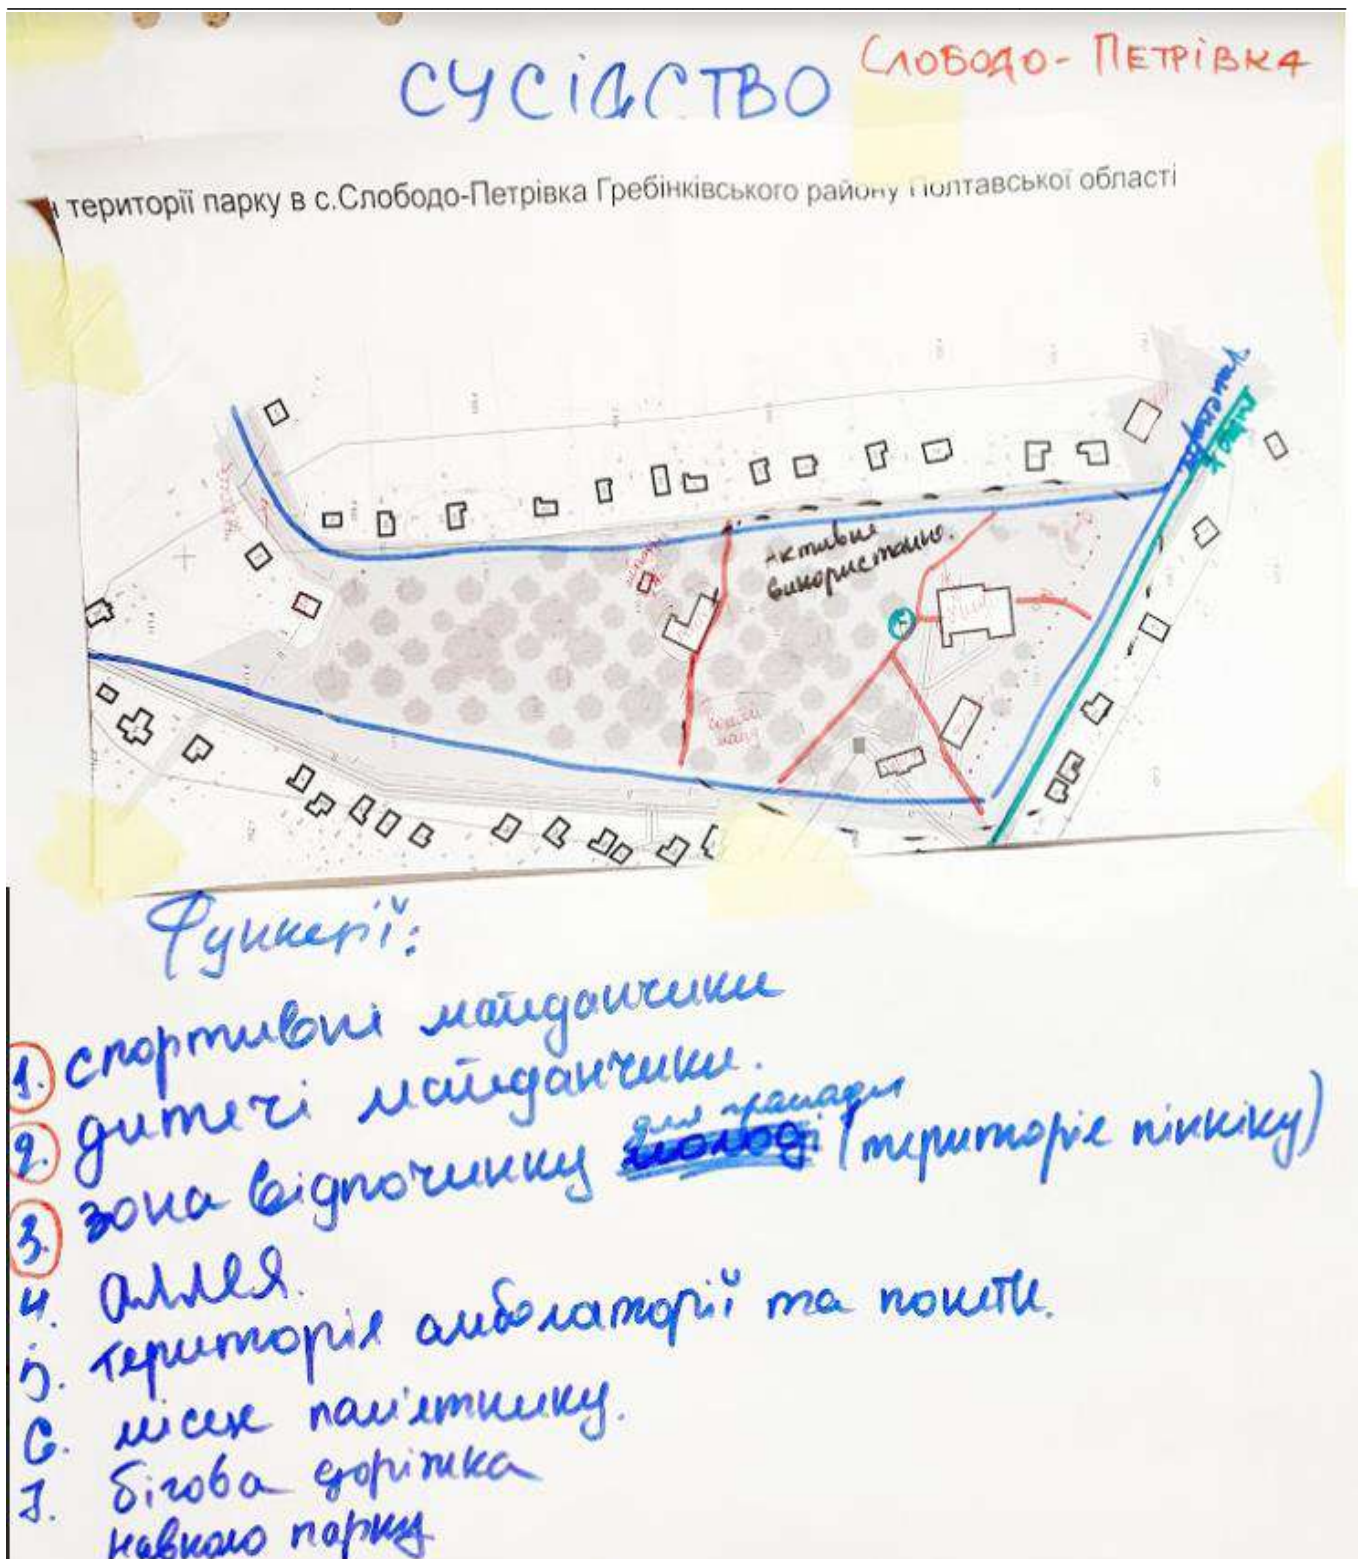 СУСІДСТВО
Слободо-Петрівка
території парку в с.Слободо-Петрівка Гребінківського району Полтавської області
активне
використання.
Функції:
1. спортивні майданчики
2. дитячі майданчики.
для громади
3. зона відпочинку (територія пікніку)
4. аллея.
5. територія амболаторії та пошти.
6. місце пам'ятнику.
7. бігова доріжка
навколо парку